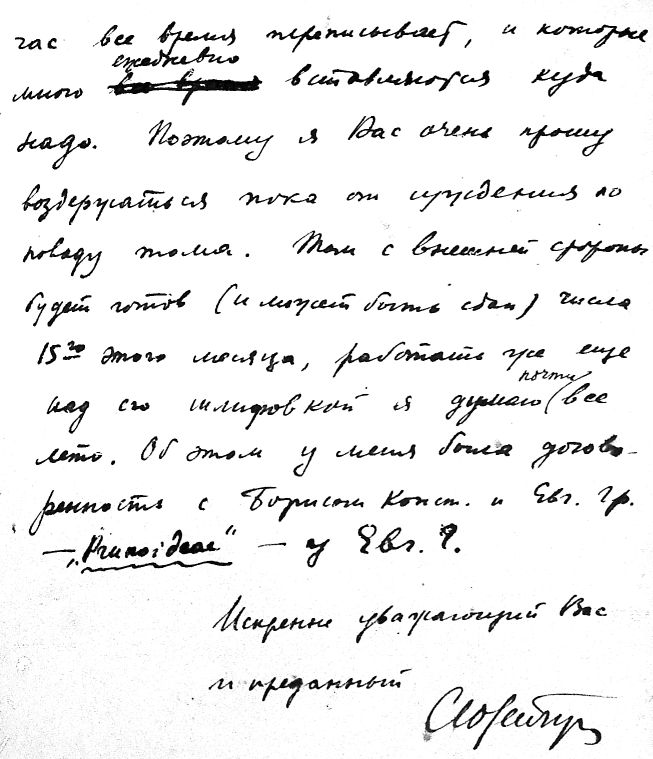 час все время переписывает, и которые
много ежедневно вставляются куда
надо. Поэтому я Вас очень прошу
воздержаться пока от суждения по
поводу тома. Том с внешней стороны
будет готов (и может быть сдан) числа
15го этого месяца, работать же еще
над его шлифовкой я думаю (почти все
лето. Об этом у меня была догово-
ренность с Борисом Конст. и Евг. Гр.
— „Prunoideae“ — у Евг. Г.
Искренне уважающий Вас
и преданный